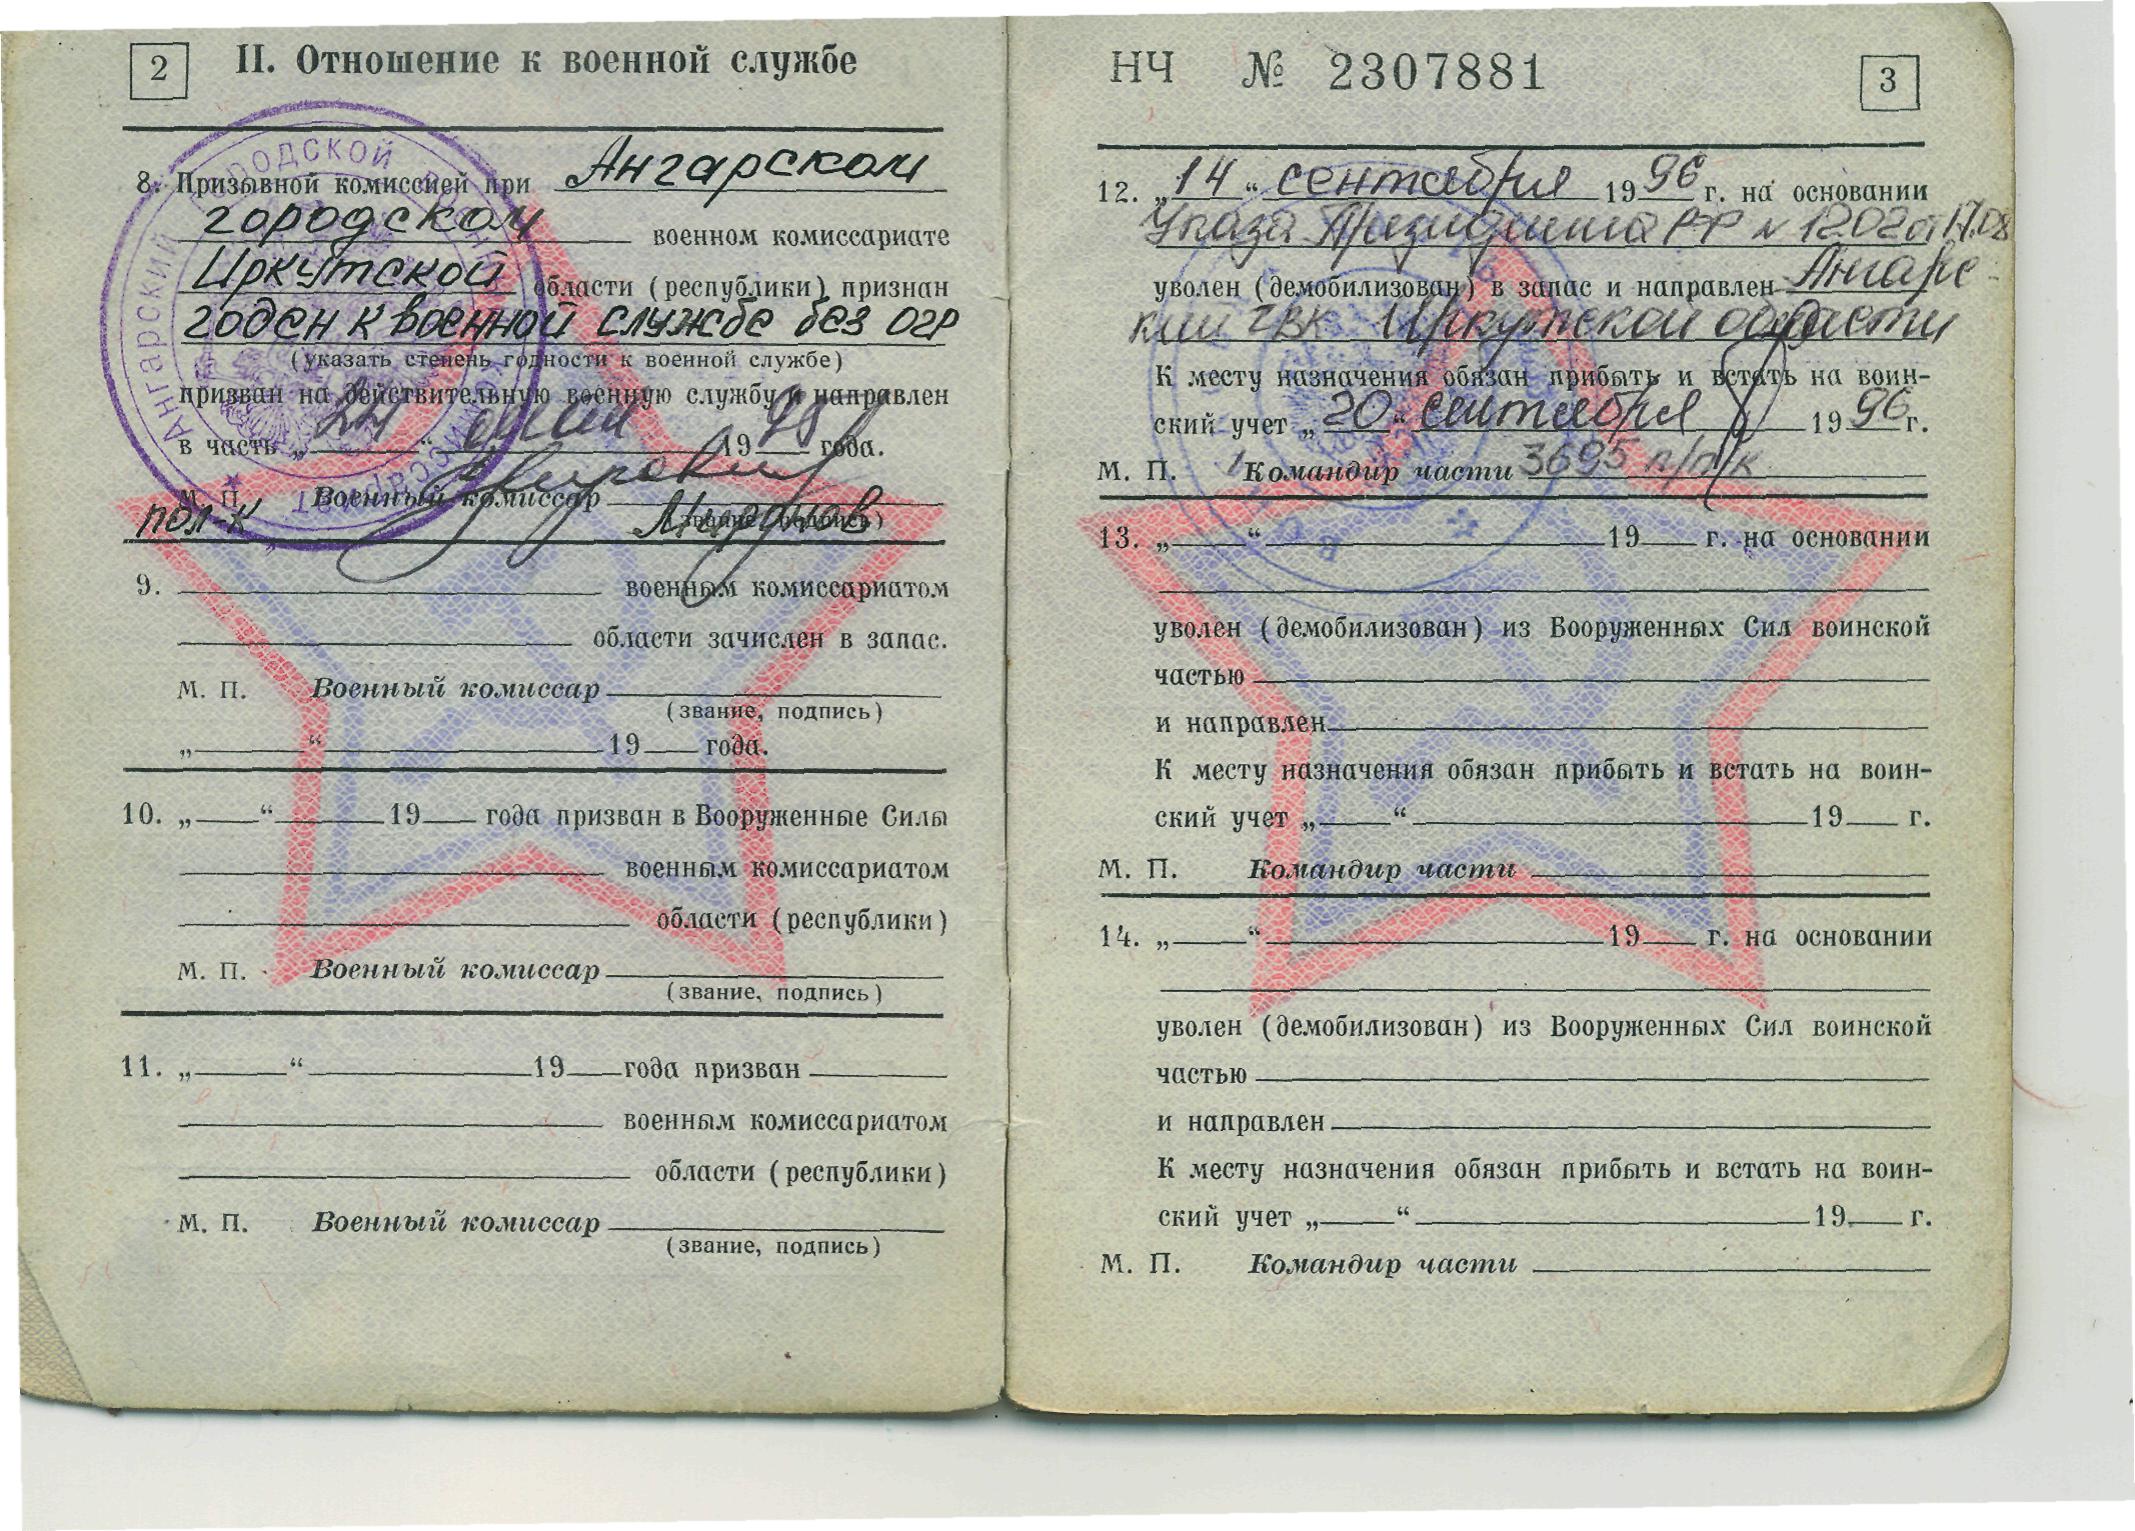 2 II. Отношение к военной службе
8. Призывной комиссией при Ангарском
городском военном комиссариате
Иркутской области (республики) признан
годен к военной службе без огр
(указать степень годности к военной службе)
призван на действительную военную службу и направлен
в часть „ “ 19 года.
М. П. Военный комиссар
пол-к
(звание, подпись)
9. военным комиссариатом
области зачислен в запас.
М. П. Военный комиссар
(звание, подпись)
„ “ 19 года.
10. „ “ 19 года призван в Вооруженные Силы
военным комиссариатом
области (республики)
М. П. Военный комиссар
(звание, подпись)
11. „ “ 19 года призван
военным комиссариатом
области (республики)
М. П. Военный комиссар
(звание, подпись)
НЧ № 2307881 3
12. „14“ сентября 1996 г. на основании
Указа Президента РФ № 1202 от 17.08
уволен (демобилизован) в запас и направлен Ангарс-
кий ГВК Иркутской области
К месту назначения обязан прибыть и встать на воин-
ский учет „20“ сентября 1996 г.
М. П. Командир части 3695 п/п/к
13. „ “ 19 г. на основании
уволен (демобилизован) из Вооруженных Сил воинской
частью
и направлен
К месту назначения обязан прибыть и встать на воин-
ский учет „ “ 19 г.
М. П. Командир части
14. „ “ 19 г. на основании
уволен (демобилизован) из Вооруженных Сил воинской
частью
и направлен
К месту назначения обязан прибыть и встать на воин-
ский учет „ “ 19 г.
М. П. Командир части